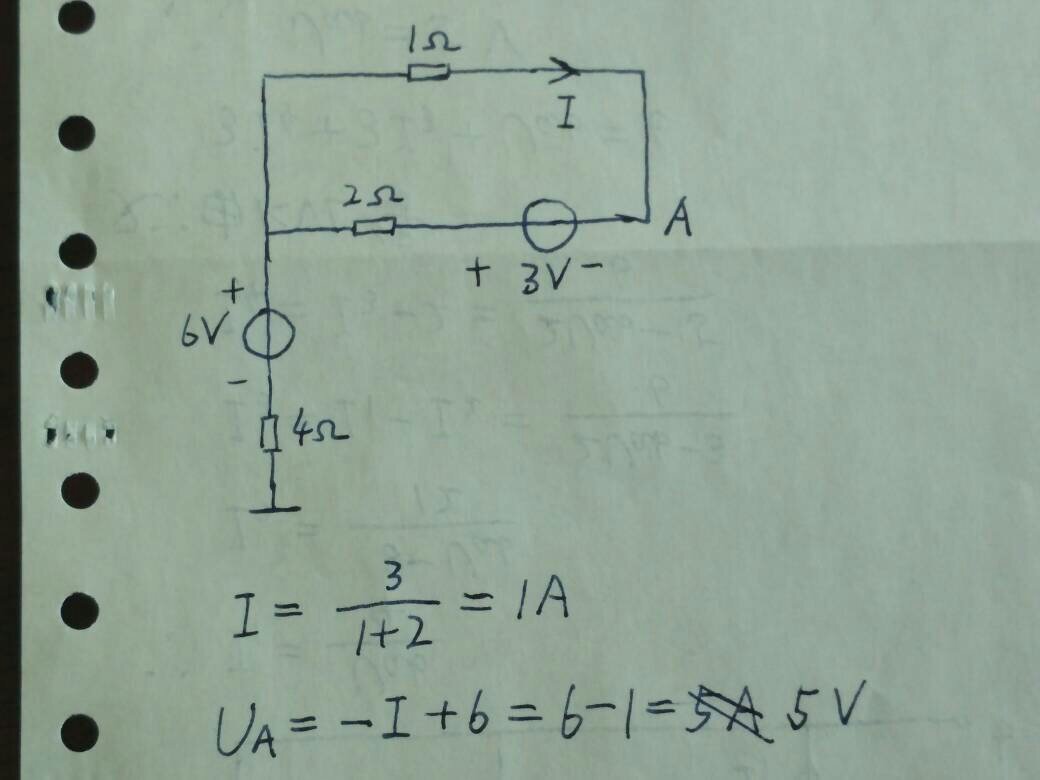 1Ω
I
2Ω
A
+ 3V -
+
6V
-
4Ω
I = 3/(1+2) = 1A
U_A = -I + 6 = 6 - 1 = 5V